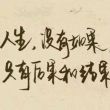 人生，没有如果
只有后果和结果